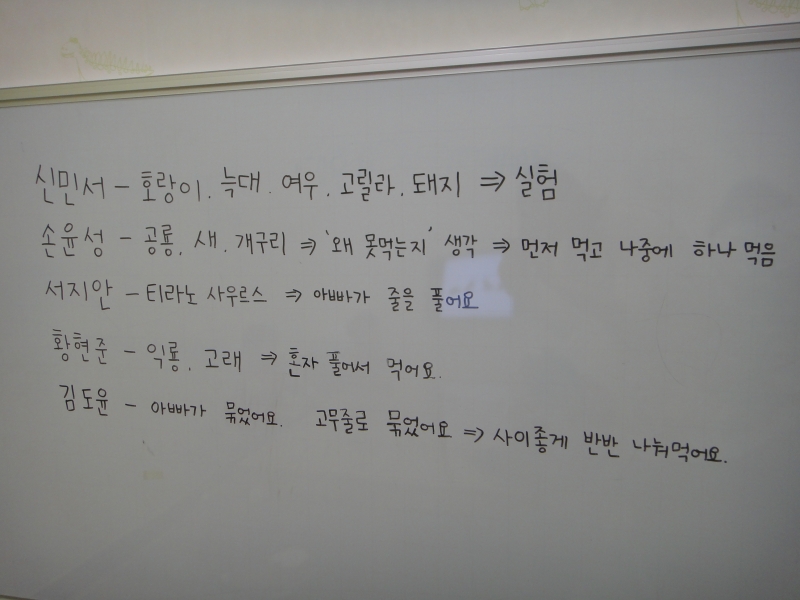 신민서 - 호랑이. 늑대. 여우. 고릴라. 돼지 ⇒ 실험
손윤성 - 공룡. 새. 개구리 ⇒ '왜 못먹는지' 생각 ⇒ 먼저 먹고 나중에 하나 먹음
서지안 - 티라노 사우르스 ⇒ 아빠가 줄을 풀어요
황현준 - 익룡. 고래 ⇒ 혼자 풀어서 먹어요.
김도윤 - 아빠가 묶었어요. 고무줄로 묶었어요 ⇒ 사이좋게 반반 나눠먹어요.